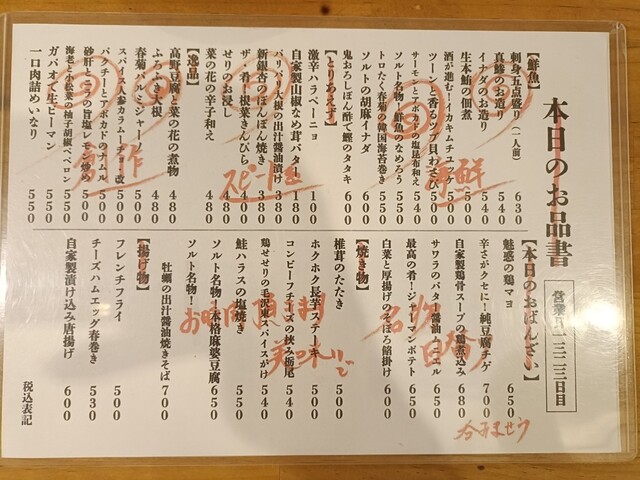 本日のお品書
営業
日目
【鮮魚】
刺身五点盛り(一人前) 630
真鯵のお造り 540
イナダのお造り 540
生本鮪の佃煮 500
酒が進む!イカキムチユッケ 500
ツーンと香るツブ貝わさび 500
サーモンとアボカドの塩昆布和え 540
ソルト名物!鮮魚のなめろう 550
トロたく春菊の韓国海苔巻き 550
ソルトの胡麻イナダ 600
鬼おろしぽん酢で鰹のタタキ 600
【とりあえず】
激辛ハラペーニョ 100
自家製山椒なめ茸バター 180
パリパリ大根の出汁醤油漬け 380
新銀杏のぽんぽん焼き 380
ザ・肴 根菜きんぴら 400
せりのお浸し 480
菜の花の辛子和え 480
【逸品】
高野豆腐と菜の花の煮物 480
ふろふき大根 480
春菊パルミジャーノ 500
スパイス人参カラムーチョー改 500
パクチーとアボカドのナムル 500
砂肝とニラの旨塩レモン炒め 550
海老と小松菜の柚子胡椒ペペロン 550
ガパオで生ピーマン 550
一口肉詰めいなり 550
【本日のおばんざい】
魅惑の鶏マヨ 650
辛さがクセに!純豆腐チゲ 700
自家製鶏骨スープの鶏煮込み 680
サワラのバター醤油ムニエル 650
最高の肴!ジャーマンポテト 650
白菜と厚揚げのそぼろ餡掛け 600
【焼き物】
椎茸のたたき 500
ホクホク長芋ステーキ 500
コンビーフチーズの挟み栃尾 540
鶏せせりの毛沢東スパイスがけ 540
鮭ハラスの塩焼き 550
ソルト名物!本格麻婆豆腐 650
ソルト名物!
牡蠣の出汁醤油焼きそば 700
【揚げ物】
フレンチフライ 500
チーズハムエッグ春巻き 530
自家製漬け込み唐揚げ 600
税込表記
海鮮
スピード
名物
美味い